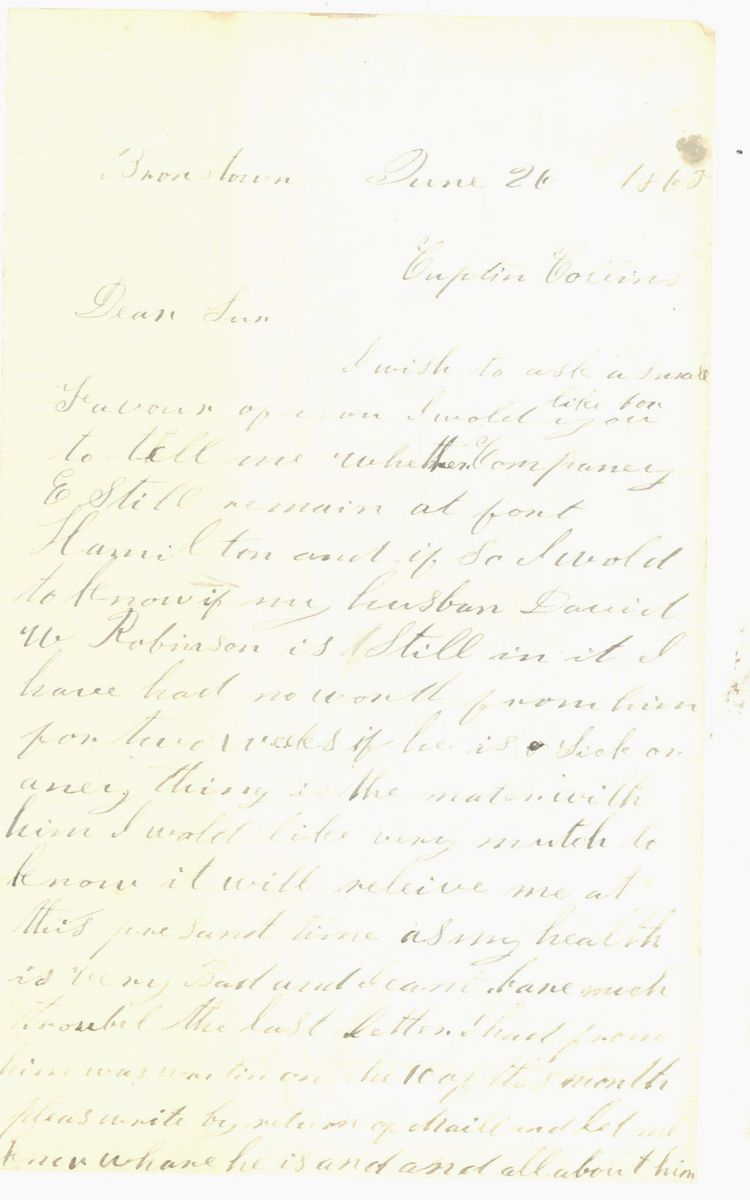 Bronstown June 26 1865
Captin Collins
Dear Sur
I wish to ask a small
Favour of you I wold like for you
to tell me whether Companey
E Still remain at fort
Hamilton and if so I wold
to know if my husban David
W Robinson is Still in it I
have had no word from him
for two weeks if he is Sick or
aney thing is the mater with
him I wold like very mutch to
know it will releive me at
this presant time as my health
is very Bad and I cant bare much
troubel the last letter I had from
him was wartin on the 10 of this month
pleas write by return of Maill and let me
know whare he is and and all about him